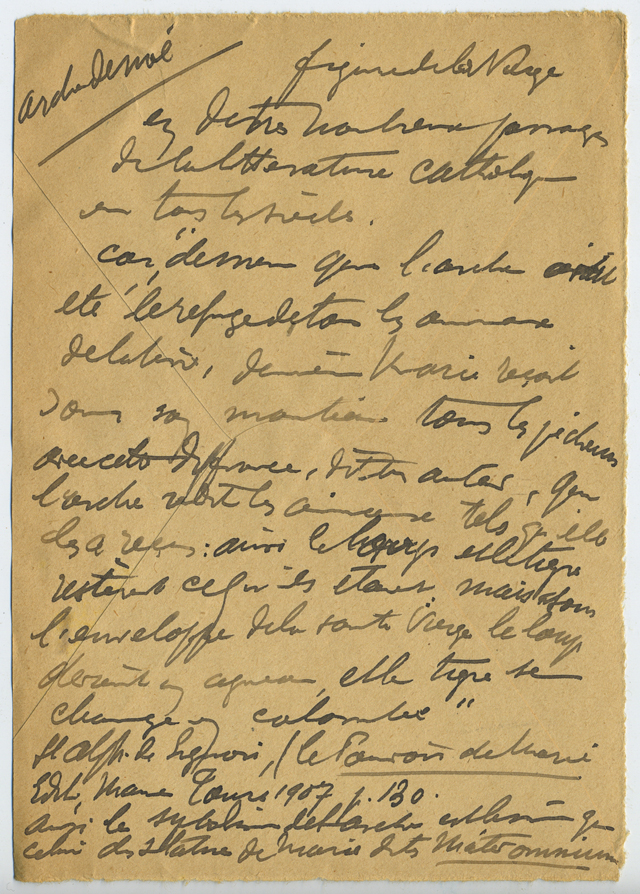 Arche de Noé
figure de la Vierge
en de très nombreux passages
de la littérature catholique
en tous les siècles.
car, "de même que l'arche avait
été le refuge de tous les animaux
de la terre, de même Marie reçoit
sous son manteau tous les pécheurs
avec cette différence, dit un auteur, que
l'arche rendit les animaux tels qu'elle
les a reçus : ainsi le loup et le tigre
restèrent ce qu'ils étaient. mais sous
l'enveloppe de la sainte Vierge le loup
devient un agneau, et le tigre se
change en colombe"
St Alph. de Liguori, (le Pouvoir de Marie
Edit, Mame Tours 1907 p. 130.
ainsi le symbolisme de l'arche est le même que
celui des statues de Marie dites Mater omnium